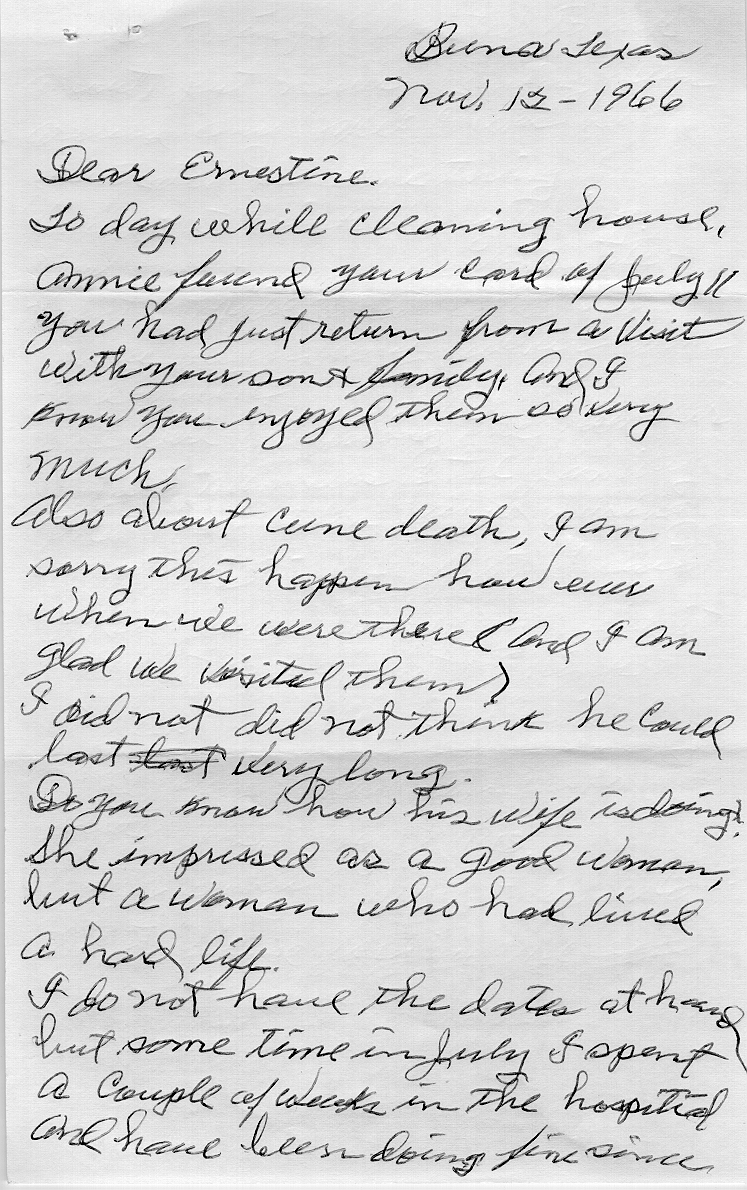 Buna Texas
Nov. 12 - 1966
Dear Ernestine.
To day, while cleaning house,
Annie found your card of July 11
You had just return from a visit
with your son & family, And I
know you enjoyed them so very
much.
Also about cune death, I am
sorry this happen how ever
when we were there (and I am
glad we visited them)
I did not did not think he could
last very long.
Do you know how his wife is doing?
She impressed as a good woman,
but a woman who had lived
a hard life.
I do not have the dates at hand
but some time in July I spent
a couple of weeks in the hospitial
and have been doing fine since